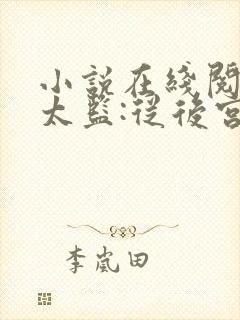 小説在綫閱
太監:從後宮
李嵐田